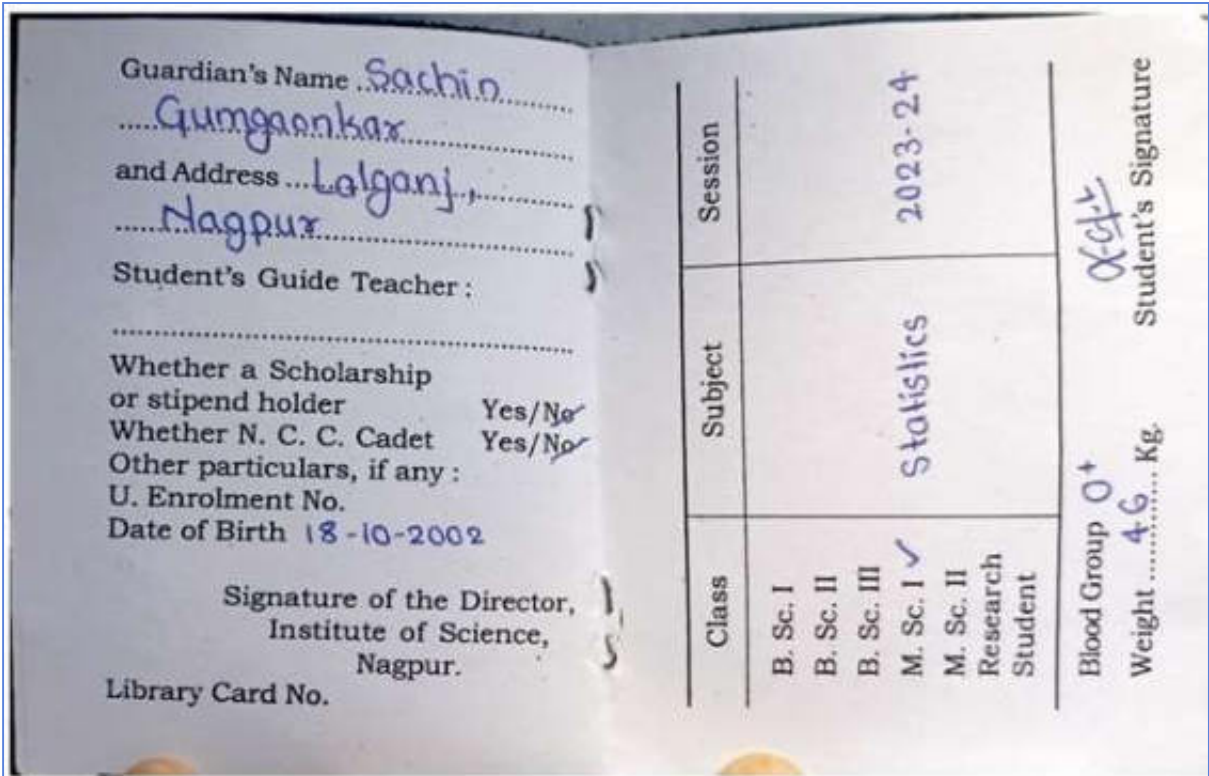 Guardian's Name ..Sachin..........
.....Gumgaonkar....................
and Address ...Lalganj,..............
......Nagpur..............................
Student's Guide Teacher :
......................................................
Whether a Scholarship
or stipend holder Yes/No
Whether N. C. C. Cadet Yes/No
Other particulars, if any :
U. Enrolment No.
Date of Birth 18-10-2002
Signature of the Director,
Institute of Science,
Nagpur.
Library Card No.
Class Subject Session
B. Sc. I
B. Sc. II
B. Sc. III
M. Sc. I ✓ Statistics 2023-24
M. Sc. II
Research
Student
Blood Group O+
Weight ....46........ Kg. Student's Signature